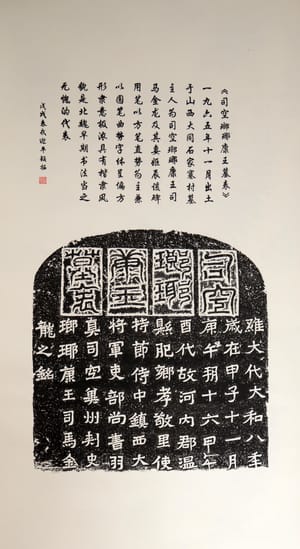 《司空瑯琊康王墓表》
一九六五年十一月出土
于山西大同石家寨村墓
主人为司空瑯琊康王司
马金龙及其妻姬辰该碑
用笔以方笔直势为主兼
以圆笔曲势字体呈偏方
形隶意极浓具有楷隶风
貌是北魏早期书法当之
无愧的代表
戊戌春
司空
瑯琊
康王
墓表
維大代大和八年
歲在甲子十一月
庚午朔十六日乙
酉代故河内郡溫
縣肥鄉孝敬里使
持節侍中鎮西大
將軍吏部尚書羽
真司空冀州刺史
瑯琊康王司馬金
龍之銘